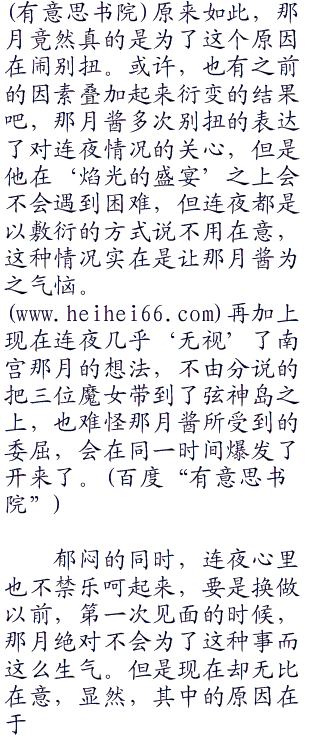 (有意思书院)原来如此，那
月竟然真的是为了这个原因
在闹别扭。或许，也有之前
的因素叠加起来衍变的结果
吧，那月酱多次别扭的表达
了对连夜情况的关心，但是
他在‘焰光的盛宴’之上会
不会遇到困难，但连夜都是
以敷衍的方式说不用在意，
这种情况实在是让那月酱为
之气恼。
(www.heihei66.com)再加上
现在连夜几乎‘无视’了南
宫那月的想法，不由分说的
把三位魔女带到了弦神岛之
上，也难怪那月酱所受到的
委屈，会在同一时间爆发了
开来了。(百度“有意思书
院”)
郁闷的同时，连夜心里
也不禁乐呵起来，要是换做
以前，第一次见面的时候，
那月绝对不会为了这种事而
这么生气。但是现在却无比
在意，显然，其中的原因在
于